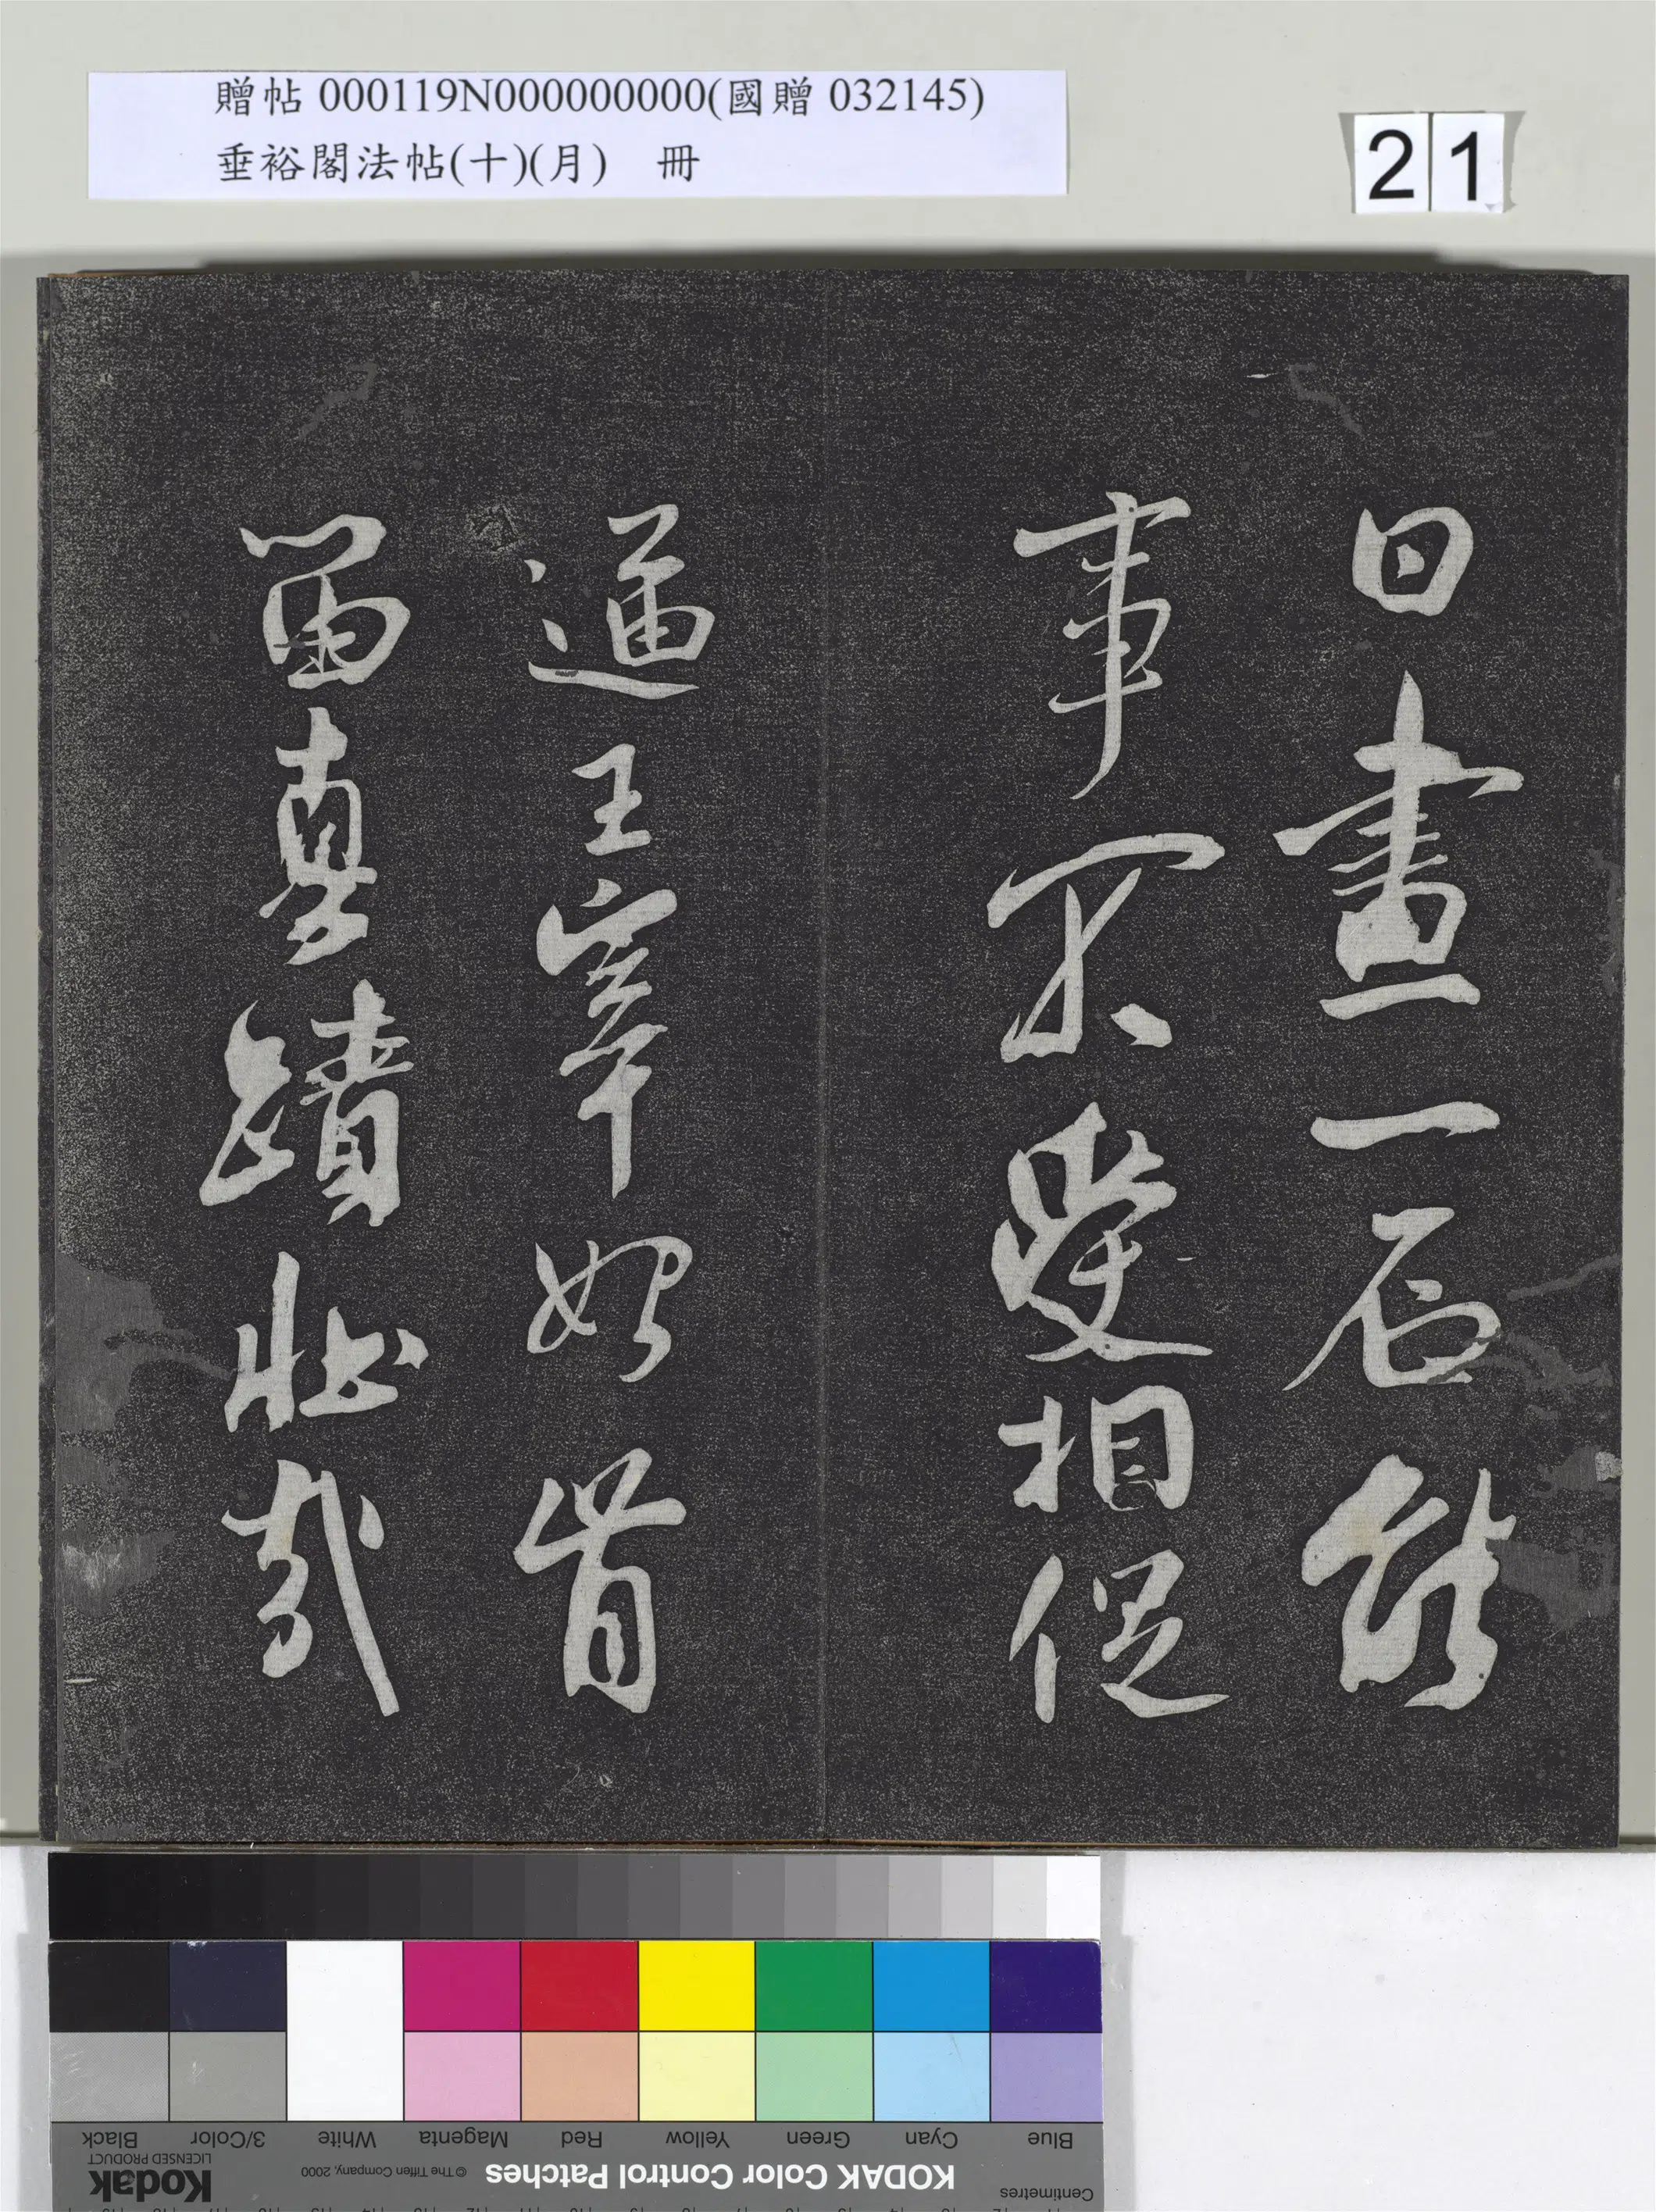 贈帖 000119N000000000(國贈 032145)
垂裕閣法帖(十)(月) 冊
21
日畫一石能
事不受相促
逼王宰始肯
留真蹟壯哉
Blue
Cyan
Green
Yellow
Red
Magenta
White
3/Color
Black
Centimetres
KODAK Color Control Patches
© The Tiffen Company, 2000
Kodak
LICENSED PRODUCT